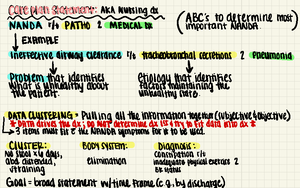 Care Plan Statement: AKA Nursing dx
NANDA r/t PATHO 2 MEDICAL DX
(ABC's to determine most important NANDA)
EXAMPLE
ineffective airway clearance r/t tracheobronchial secretions 2 pneumonia
Problem that identifies
What is unhealthy about
the patient
Etiology that identifies
Factors maintaining the
unhealthy state
DATA CLUSTERING = Pulling all the information together (subjective & objective)
* DATA drives the dx; DO NOT determine dx 1st & try to fit data into dx *
3 items must fit the NANDA symptoms for it to be used
CLUSTER: BODY SYSTEM: Diagnosis:
No stool x4 days, elimination constipation r/t
abd distended, inadequate physical exercise 2
straining BR status
Goal = broad statement w/time frame (e.g. by discharge)